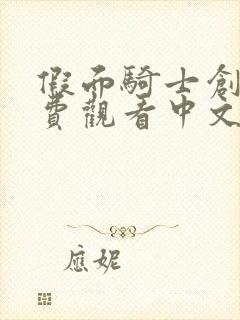 假面騎士創
費觀看中文
應妮